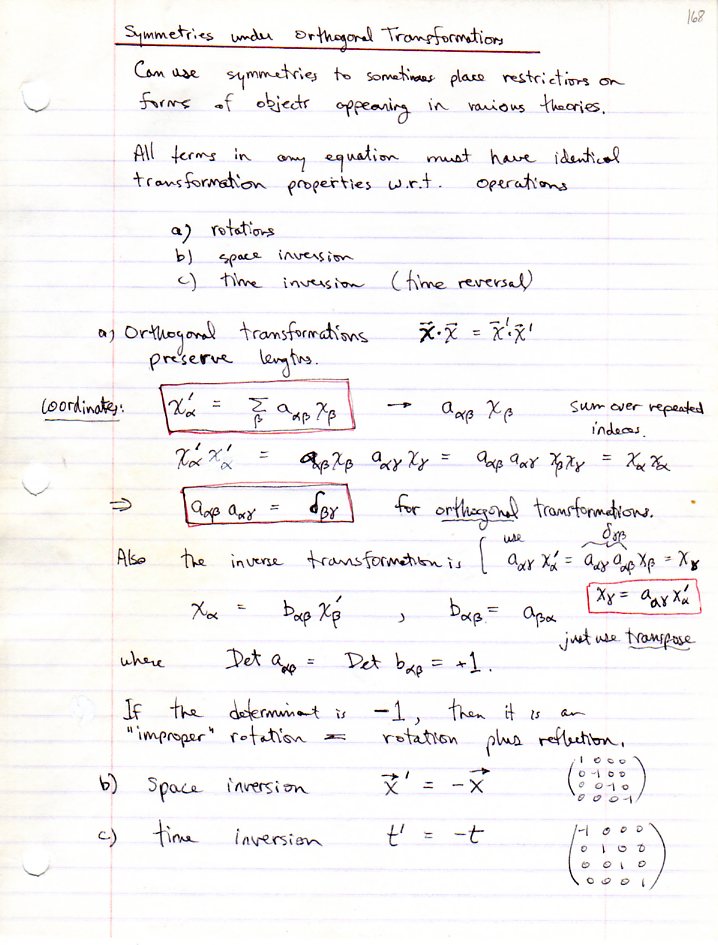 168
Symmetries under Orthogonal Transformations
Can use symmetries to sometimes place restrictions on
forms of objects appearing in various theories.
All terms in any equation must have identical
transformation properties w.r.t. operations
a) rotations
b) space inversion
c) time inversion (time reversal)
a) Orthogonal transformations x⃗·x⃗ = x⃗'·x⃗'
preserve lengths.
Coordinates: x'_α = Σ_β a_αβ x_β → a_αβ x_β sum over repeated
indeces.
x'_α x'_α = a_αβ x_β a_αγ x_γ = a_αβ a_αγ x_β x_γ = x_α x_α
⇒ a_αβ a_αγ = δ_βγ for orthogonal transformations.
Also the inverse transformation is [ use a_αγ x'_α = a_αγ a_αβ x_β = x_γ
δ_γβ
x_α = b_αβ x'_β , b_αβ = a_βα x_γ = a_αγ x'_α
just use transpose
where Det a_αβ = Det b_αβ = +1.
If the determinant is -1, then it is an
"improper" rotation = rotation plus reflection.
b) space inversion x⃗' = -x⃗ (1 0 0 0
0 -1 0 0
0 0 -1 0
0 0 0 -1)
c) time inversion t' = -t (-1 0 0 0
0 1 0 0
0 0 1 0
0 0 0 1)